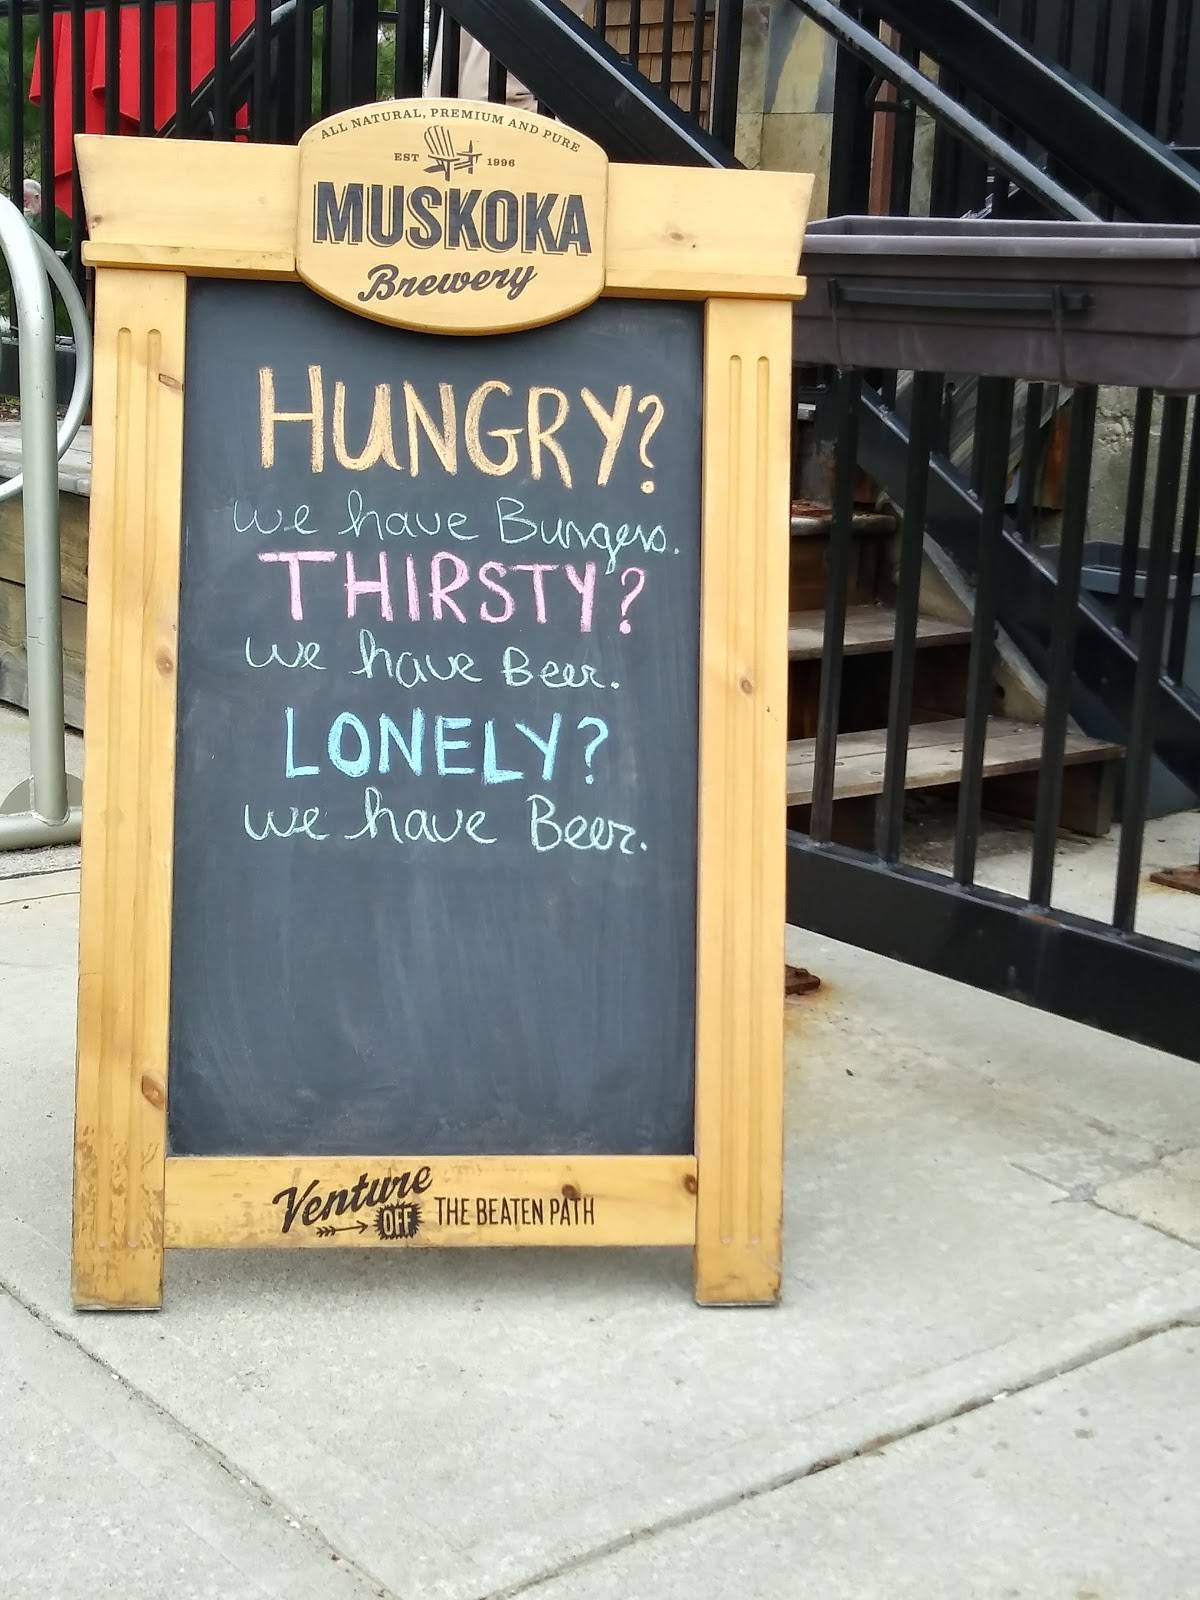 ALL NATURAL, PREMIUM AND PURE
EST 1996
MUSKOKA
Brewery
HUNGRY?
we have Burgers.
THIRSTY?
we have Beer.
LONELY?
we have Beer.
Venture OFF THE BEATEN PATH